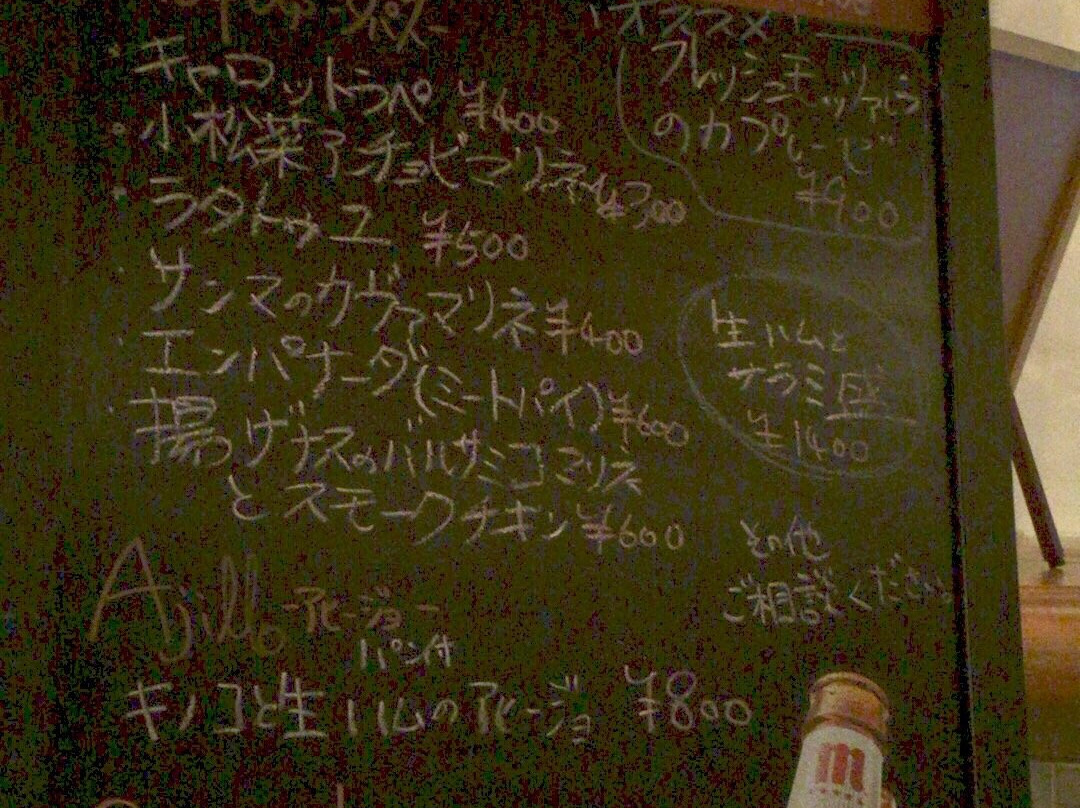 タパス
キャロットラペ ¥400
小松菜アンチョビマリネ¥300
ラタトゥユ ¥500
サンマのカヴァマリネ¥400
エンパナーダ(ミートパイ)¥600
揚げナスのバルサミコマリネ
とスモークチキン¥600
Ajillo -アヒージョ-
パン付
キノコと生ハムのアヒージョ ¥800
オススメ!
フレッシュモッツァレラ
のカプレーゼ
¥900
生ハムと
サラミ盛
¥1400
その他
ご相談ください。
m